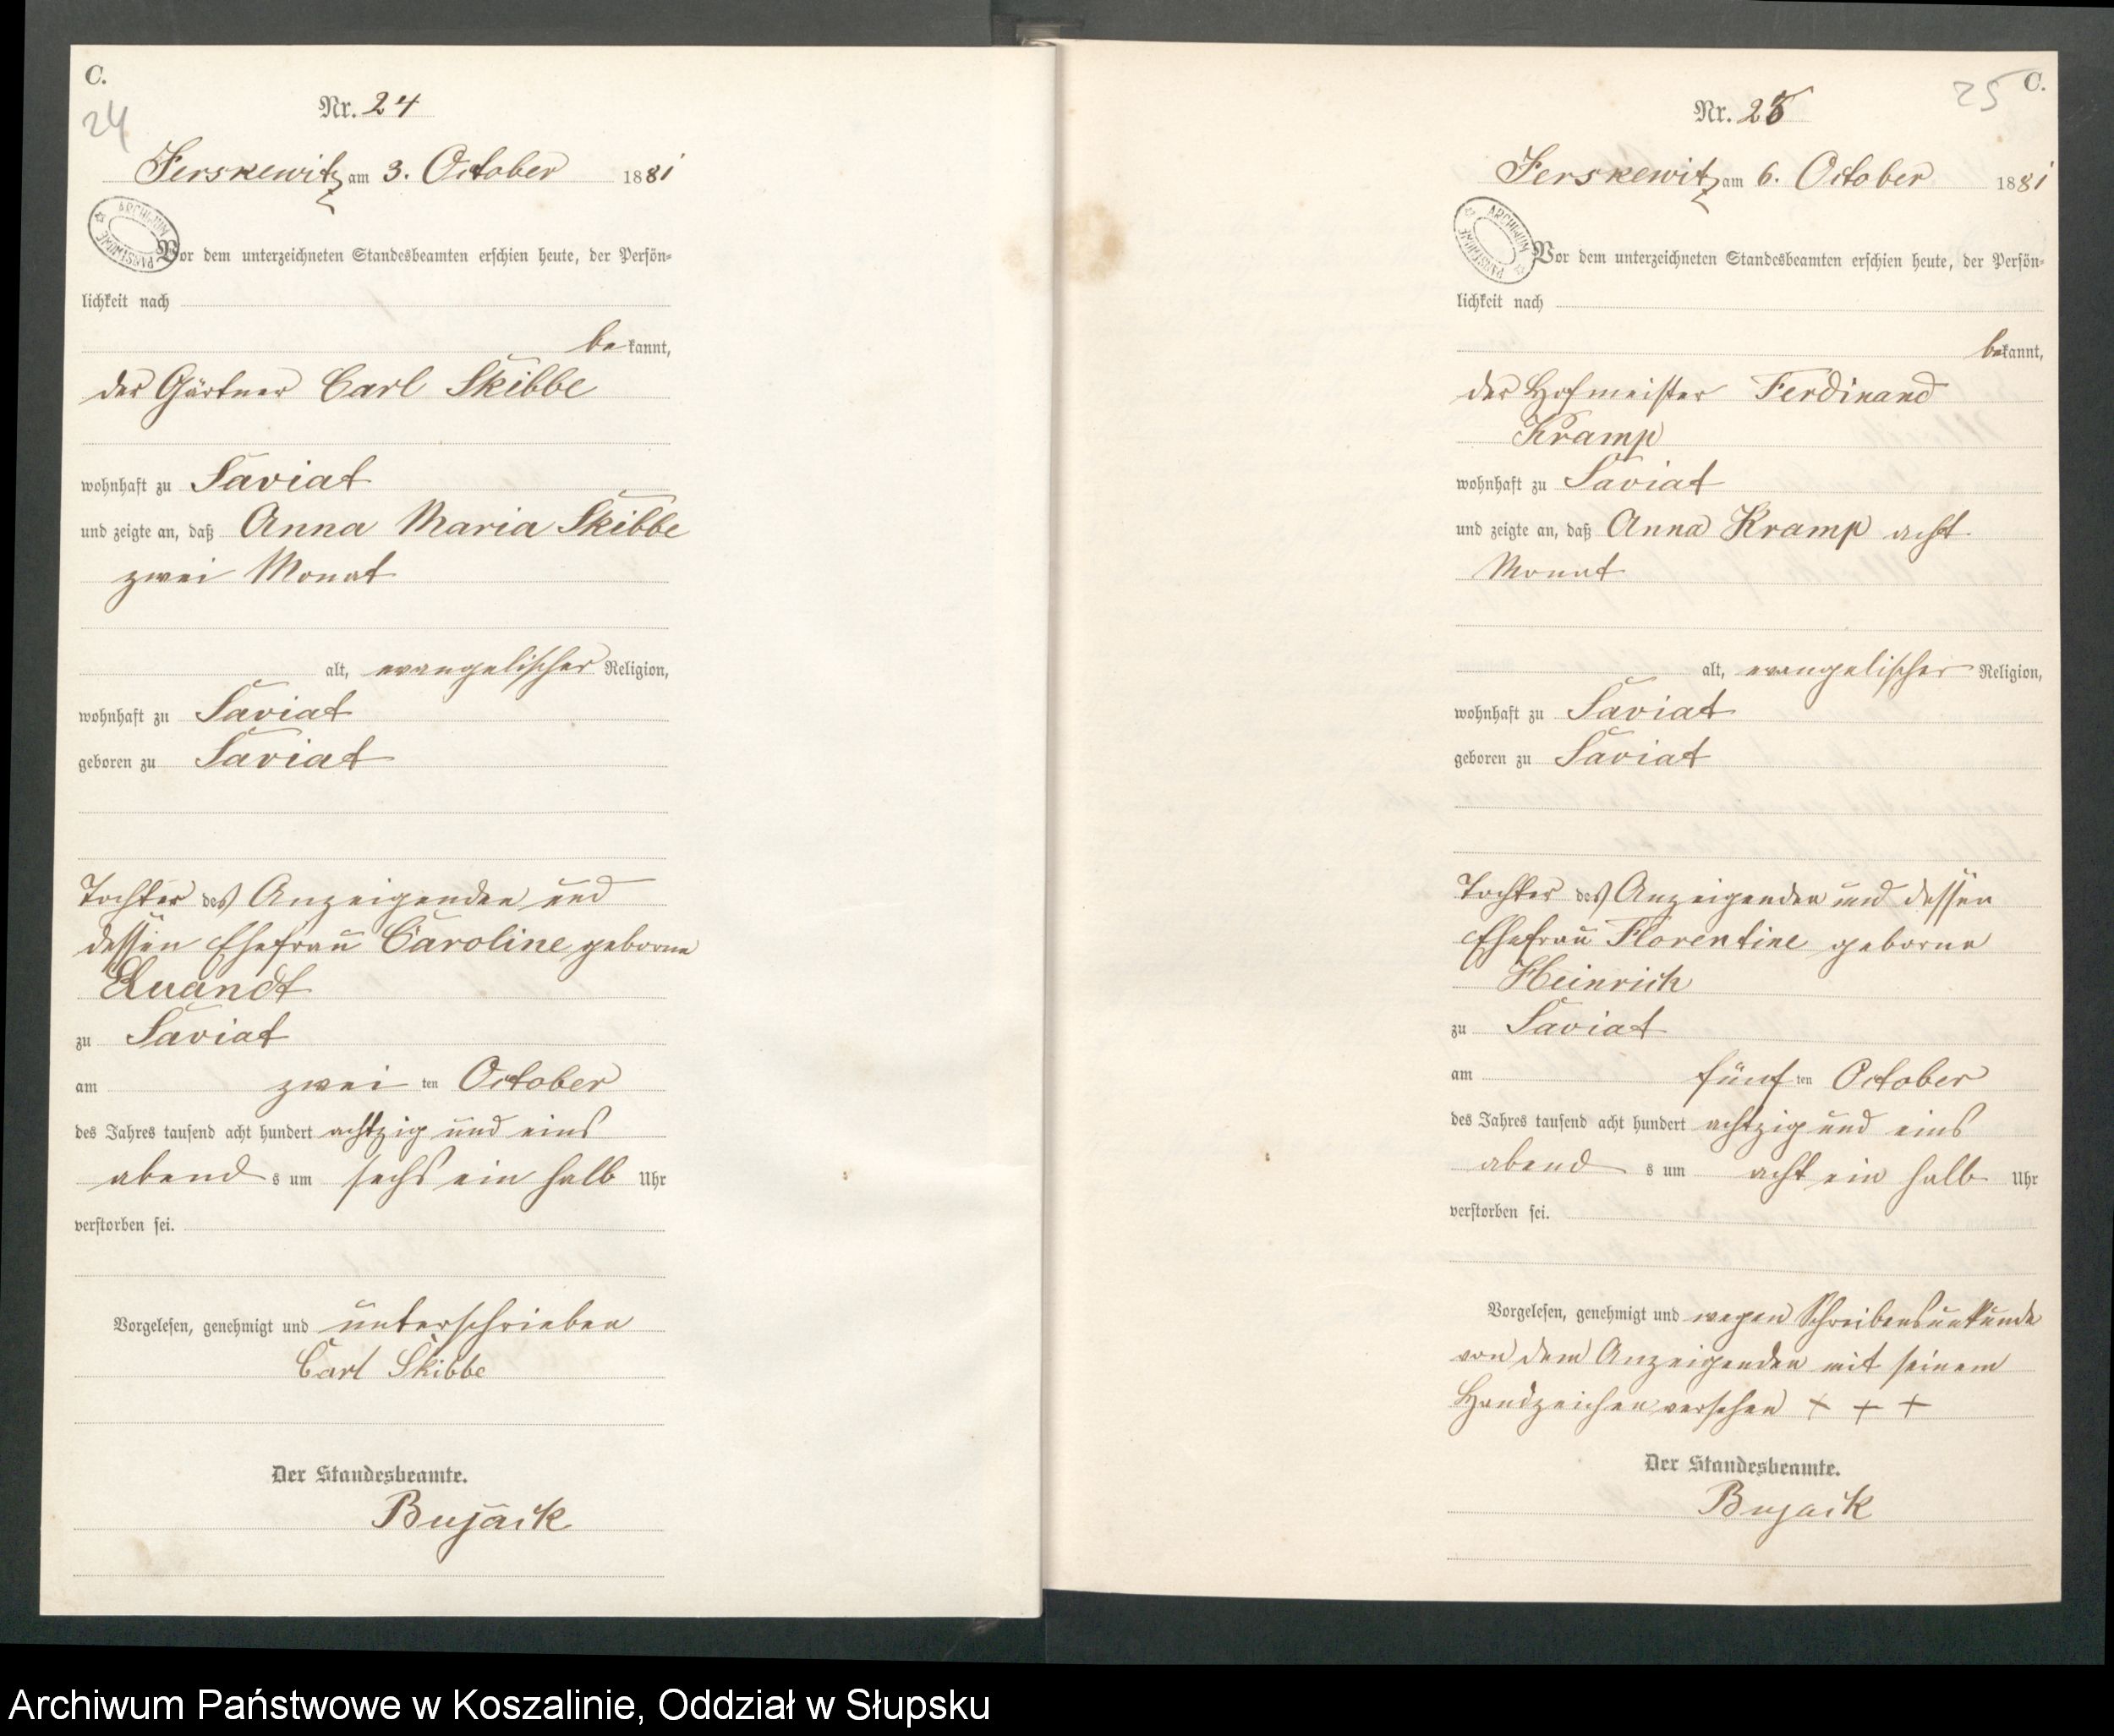 C.
24
Nr. 24
Jerskewitz am 3. October 1881
ARCHIWUM PAŃSTWOWE
Vor dem unterzeichneten Standesbeamten erschien heute, der Persön-
lichkeit nach
be kannt,
der Gärtner Carl Skibbe
wohnhaft zu Saviat
und zeigte an, daß Anna Maria Skibbe
zwei Monat
alt, evangelischer Religion,
wohnhaft zu Saviat
geboren zu Saviat
Tochter des Anzeigenden und
dessen Ehefrau Caroline geborne
Quandt
zu Saviat
am zwei ten October
des Jahres tausend acht hundert achtzig und eins
abend s um sechs ein halb Uhr
verstorben sei.
Vorgelesen, genehmigt und unterschrieben
Carl Skibbe
Der Standesbeamte.
Bujack
25 C.
Nr. 25
Jerskewitz am 6. October 1881
ARCHIWUM PAŃSTWOWE
Vor dem unterzeichneten Standesbeamten erschien heute, der Persön-
lichkeit nach
bekannt,
der Hofmeister Ferdinand
Kramp
wohnhaft zu Saviat
und zeigte an, daß Anna Kramp acht
Monat
alt, evangelischer Religion,
wohnhaft zu Saviat
geboren zu Saviat
Tochter des Anzeigenden und dessen
Ehefrau Florentine geborne
Heinrich
zu Saviat
am fünf ten October
des Jahres tausend acht hundert achtzig und eins
abend s um acht ein halb Uhr
verstorben sei.
Vorgelesen, genehmigt und wegen Schreibensunkunde
von dem Anzeigenden mit seinem
Handzeichen versehen + + +
Der Standesbeamte.
Bujack
Archiwum Państwowe w Koszalinie, Oddział w Słupsku